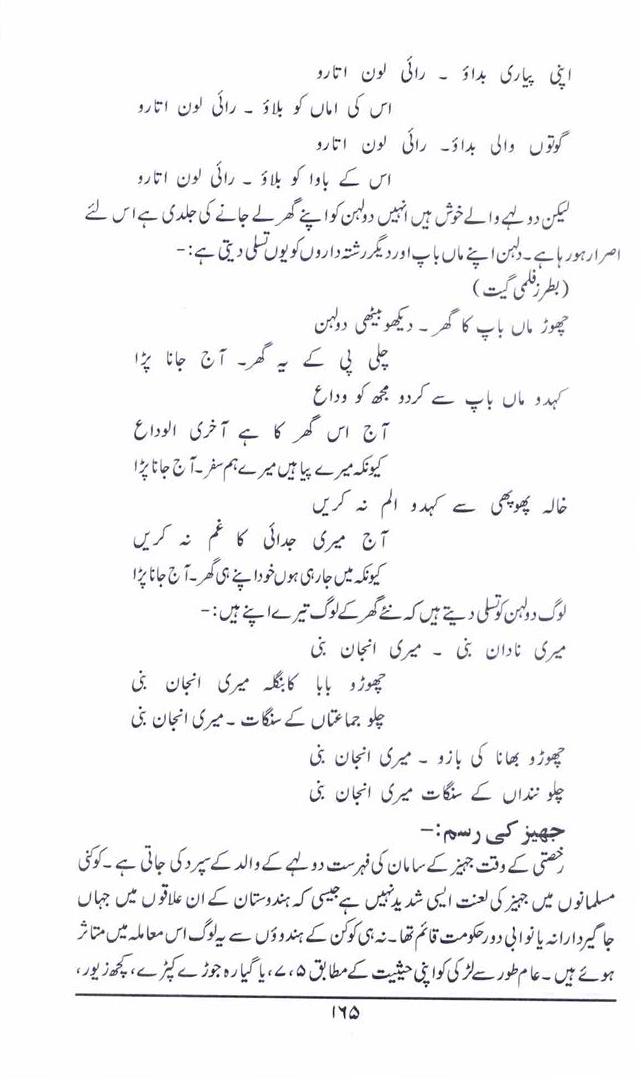 اپنی پیاری بداؤ ۔ رائی لون اتارو
اس کی اماں کو بلاؤ ۔ رائی لون اتارو
گوتوں والی بداؤ۔ رائی لون اتارو
اس کے باوا کو بلاؤ ۔ رائی لون اتارو
لیکن دولہے والے خوش ہیں انہیں دولہن کو اپنے گھر لے جانے کی جلدی ہے اس لئے
اصرار ہو رہا ہے۔ دلہن اپنے ماں باپ اور دیگر رشتہ داروں کو یوں تسلی دیتی ہے:-
(بطرز فلمی گیت)
چھوڑ ماں باپ کا گھر ۔ دیکھو بیٹھی دولہن
چلی پی کے یہ گھر۔ آج جانا پڑا
کہدو ماں باپ سے کردو مجھ کو وداع
آج اس گھر کا ہے آخری الوداع
کیونکہ میرے پیا ہیں میرے ہم سفر۔ آج جانا پڑا
خالہ پھوپھی سے کہدو الم نہ کریں
آج میری جدائی کا غم نہ کریں
کیونکہ میں جارہی ہوں خود اپنے ہی گھر۔ آج جانا پڑا
لوگ دولہن کو تسلی دیتے ہیں کہ نئے گھر کے لوگ تیرے اپنے ہیں:-
میری نادان بنی ۔ میری انجان بنی
چھوڑو بابا کا بنگلہ میری انجان بنی
چلو جماعتاں کے سنگات ۔ میری انجان بنی
چھوڑو بھانا کی بازو ۔ میری انجان بنی
چلو ننداں کے سنگات میری انجان بنی
جہیز کی رسم:-
رخصتی کے وقت جہیز کے سامان کی فہرست دولہے کے والد کے سپرد کی جاتی ہے ۔ کوکنی
مسلمانوں میں جہیز کی لعنت ایسی شدید نہیں ہے جیسی کہ ہندوستان کے ان علاقوں میں جہاں
جاگیردارانہ یا نوابی دور حکومت قائم تھا۔ نہ ہی کوکن کے ہندوؤں سے یہ لوگ اس معاملہ میں متاثر
ہوئے ہیں ۔ عام طور سے لڑکی کو اپنی حیثیت کے مطابق ۵، ۷، یا گیارہ جوڑے کپڑے، کچھ زیور،
۱۶۵